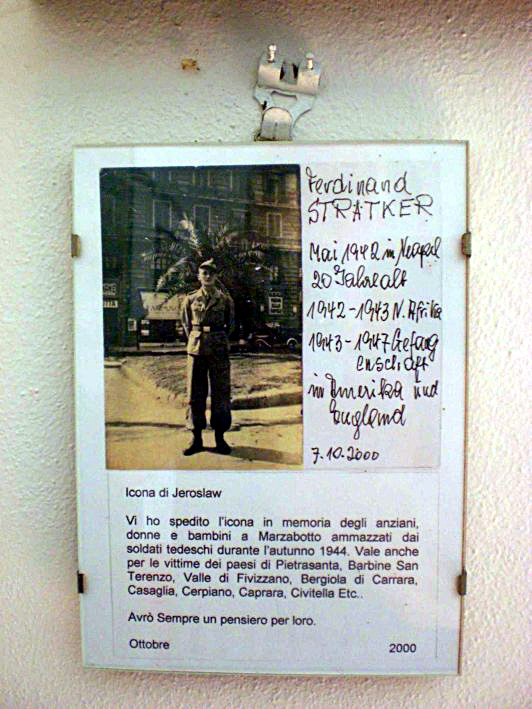 Ferdinand
STRÄTKER
Mai 1942 in Neapel
20 Jahre alt
1942-1943 N. Afrika
1943-1947 Gefang
enschaft
in Amerika und
England
7.10.2000
Icona di Jeroslaw
Vi ho spedito l'icona in memoria degli anziani,
donne e bambini a Marzabotto ammazzati dai
soldati tedeschi durante l'autunno 1944. Vale anche
per le vittime dei paesi di Pietrasanta, Barbine San
Terenzo, Valle di Fivizzano, Bergiola di Carrara,
Casaglia, Cerpiano, Caprara, Civitella Etc..
Avrò Sempre un pensiero per loro.
Ottobre 2000